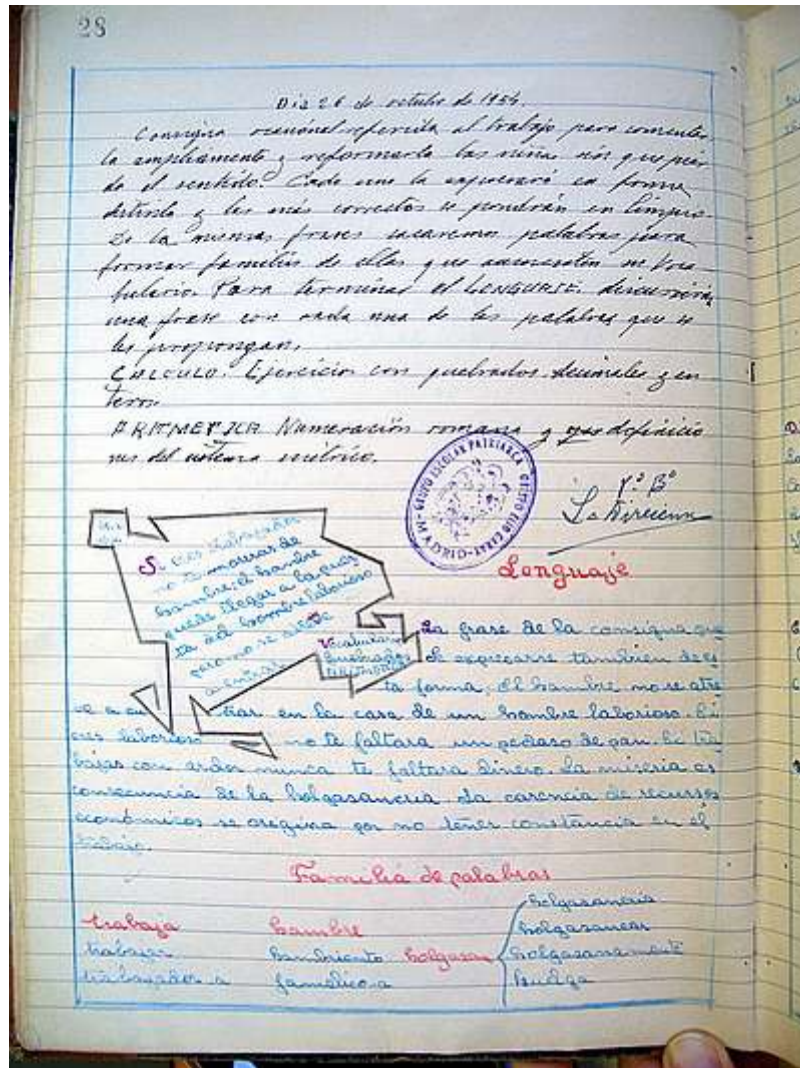 28
Dia 26 de octubre de 1954.
Consigna ocasional referida al trabajo para comentar
la ampliamente y reformarla las niñas sin que pier
da el sentido. Cada una la expresará en forma
distinta y las más correctas se pondrán en limpio.
De la misma frases sacaremos palabras para
formar familias de ellas que aumenten su voca
bulario. Para terminar el LENGUAJE. discurrirán
una frase con cada una de las palabras que se
les propongan.
CALCULO. Ejercicios con quebrados decimales y en
teros.
ARITMETICA Numeración romana y definicio
nes del sistema métrico.
GRUPO ESCOLAR PATRIARCA
Vº Bº
La Directora
Si eres trabajador
no te moriras de
hambre; el hambre
puede llegar a la puer
ta del hombre laborioso
pero no se atreve
a entrar
Vocabulario
Lenguaje
La frase de la consigna pue
de expresarse tambien de es
ta forma, el hambre no se atre
ve a en trar en la casa de un hombre laborioso. Si
eres laborioso no te faltara un pedaso de pan. Si tra
bajas con ardor nunca te faltara dinero. La miseria es
consecuncia de la holgasaneria. La carencia de recursos
económicos se oregina por no tener constancia en el
trabajo.
Familia de palabras
trabaja hambre holgasaneria
trabajar hambriento holgasan holgasanear
trabajador a famelico a holgasanamente
huelga